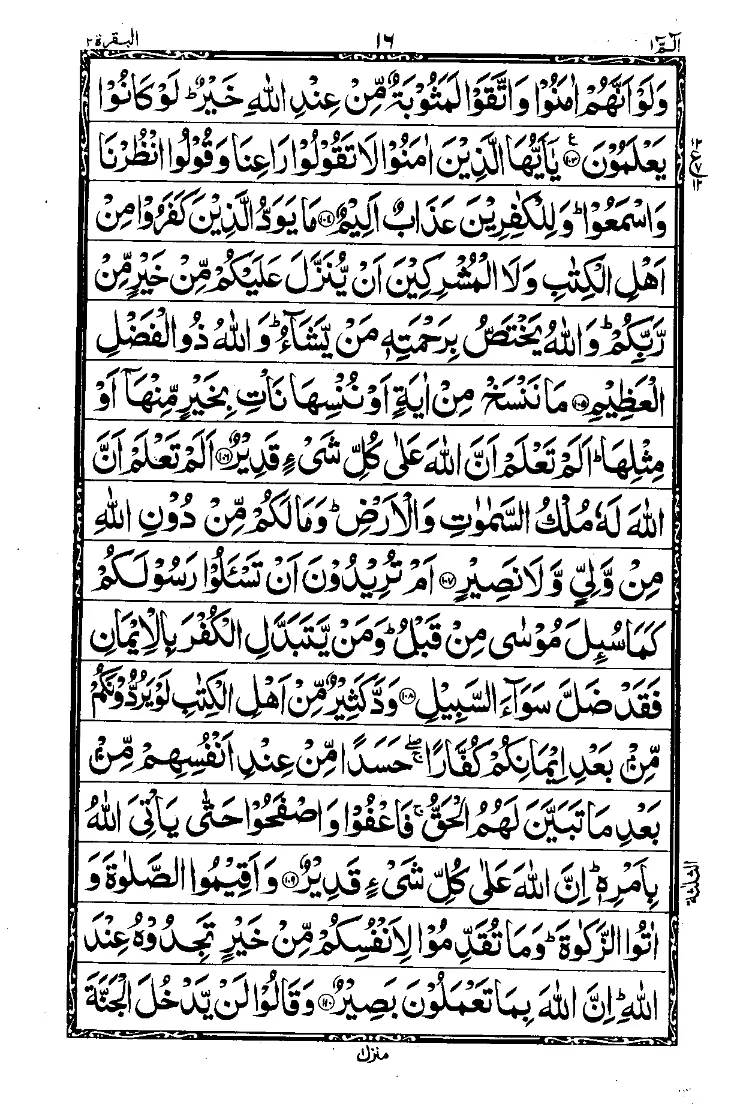 الٓمّٓ ١ ١٦ البقرة ٢
وَلَوْ اَنَّهُمْ اٰمَنُوْا وَاتَّقَوْا لَمَثُوْبَةٌ مِّنْ عِنْدِ اللّٰهِ خَيْرٌ ؕ لَوْ كَانُوْا
يَعْلَمُوْنَ ﴿١٠٣﴾ ع يٰۤاَيُّهَا الَّذِيْنَ اٰمَنُوْا لَا تَقُوْلُوْا رَاعِنَا وَقُوْلُوا انْظُرْنَا
١٢ ع ٧ ١٢
وَاسْمَعُوْا ؕ وَلِلْكٰفِرِيْنَ عَذَابٌ اَلِيْمٌ ﴿١٠٤﴾ مَا يَوَدُّ الَّذِيْنَ كَفَرُوْا مِنْ
اَهْلِ الْكِتٰبِ وَلَا الْمُشْرِكِيْنَ اَنْ يُّنَزَّلَ عَلَيْكُمْ مِّنْ خَيْرٍ مِّنْ
رَّبِّكُمْ ؕ وَاللّٰهُ يَخْتَصُّ بِرَحْمَتِهٖ مَنْ يَّشَآءُ ؕ وَاللّٰهُ ذُو الْفَضْلِ
الْعَظِيْمِ ﴿١٠٥﴾ مَا نَنْسَخْ مِنْ اٰيَةٍ اَوْ نُنْسِهَا نَاْتِ بِخَيْرٍ مِّنْهَاۤ اَوْ
مِثْلِهَا ؕ اَلَمْ تَعْلَمْ اَنَّ اللّٰهَ عَلٰى كُلِّ شَیْءٍ قَدِيْرٌ ﴿١٠٦﴾ اَلَمْ تَعْلَمْ اَنَّ
اللّٰهَ لَهٗ مُلْكُ السَّمٰوٰتِ وَالْاَرْضِ ؕ وَمَا لَكُمْ مِّنْ دُوْنِ اللّٰهِ
مِنْ وَّلِيٍّ وَّلَا نَصِيْرٍ ﴿١٠٧﴾ اَمْ تُرِيْدُوْنَ اَنْ تَسْـَٔلُوْا رَسُوْلَكُمْ
كَمَا سُىِٕلَ مُوْسٰى مِنْ قَبْلُ ؕ وَمَنْ يَّتَبَدَّلِ الْكُفْرَ بِالْاِيْمَانِ
فَقَدْ ضَلَّ سَوَآءَ السَّبِيْلِ ﴿١٠٨﴾ وَدَّ كَثِيْرٌ مِّنْ اَهْلِ الْكِتٰبِ لَوْ يَرُدُّوْنَكُمْ
مِّنْۢ بَعْدِ اِيْمَانِكُمْ كُفَّارًا ۖۚ حَسَدًا مِّنْ عِنْدِ اَنْفُسِهِمْ مِّنْۢ
بَعْدِ مَا تَبَيَّنَ لَهُمُ الْحَقُّ ۚ فَاعْفُوْا وَاصْفَحُوْا حَتّٰى يَاْتِیَ اللّٰهُ
بِاَمْرِهٖ ؕ اِنَّ اللّٰهَ عَلٰى كُلِّ شَیْءٍ قَدِيْرٌ ﴿١٠٩﴾ وَاَقِيْمُوا الصَّلٰوةَ وَ
الثلثة
اٰتُوا الزَّكٰوةَ ؕ وَمَا تُقَدِّمُوْا لِاَنْفُسِكُمْ مِّنْ خَيْرٍ تَجِدُوْهُ عِنْدَ
اللّٰهِ ؕ اِنَّ اللّٰهَ بِمَا تَعْمَلُوْنَ بَصِيْرٌ ﴿١١٠﴾ وَقَالُوْا لَنْ يَّدْخُلَ الْجَنَّةَ
منزل